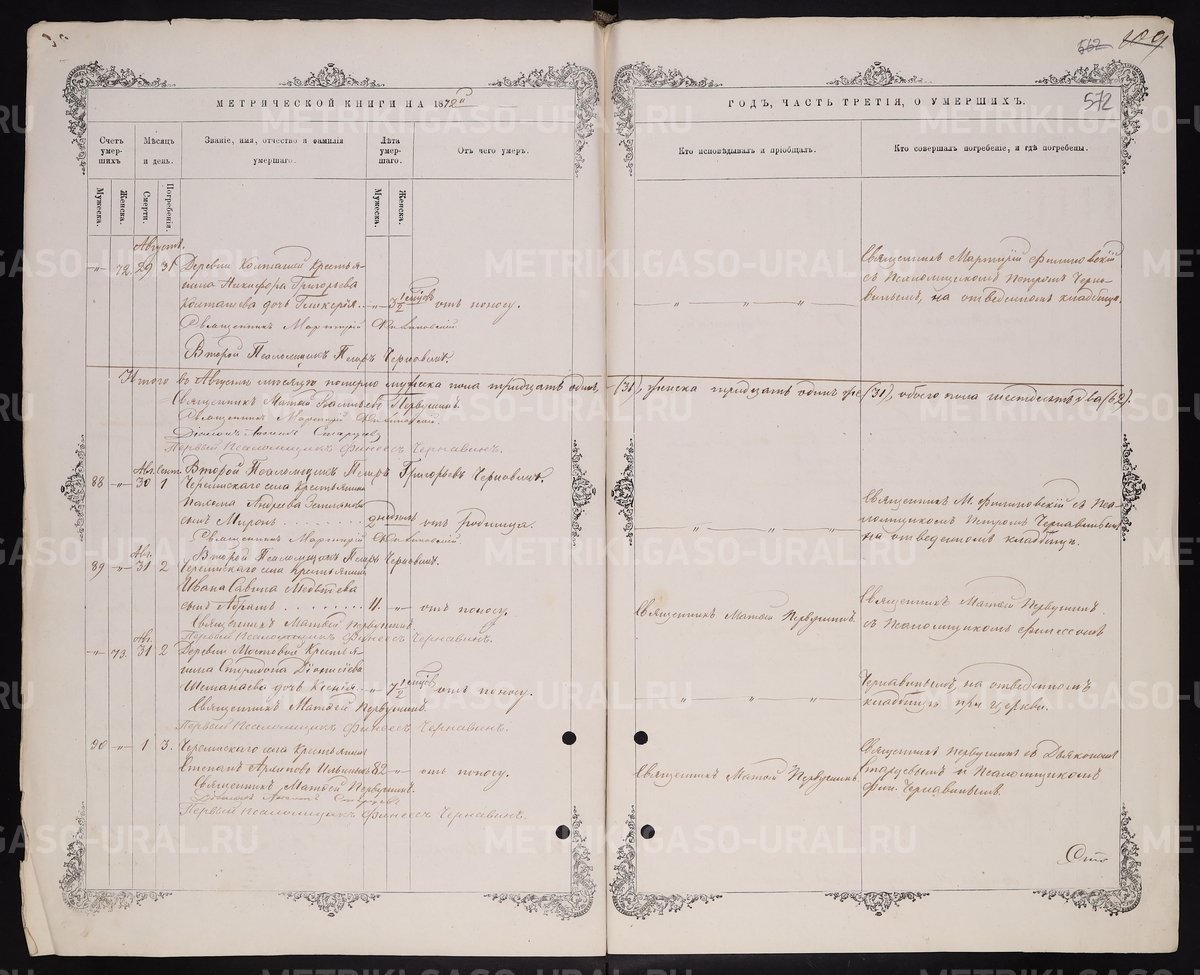 562 109
572
МЕТРИЧЕСКОЙ КНИГИ НА 1872й
ГОДЪ, ЧАСТЬ ТРЕТІЯ, О УМЕРШИХЪ.
Счетъ умерших.
Мѣсяцъ и день.
Званіе, имя, отчество и фамилія умершаго.
Лѣта умершаго.
Отъ чего умеръ.
Кто исповѣдывалъ и пріобщалъ.
Кто совершалъ погребеніе, и гдѣ погребены.
Мужеска.
Женска.
Смерти.
Погребенія.
Мужеска.
Женска.
Августъ.
" 72. 29 31 Деревни Колташей Кресть-
янина Никифора Григорьева
Колташева дочь Гликерія. " 3 1/2 мѣсяц. отъ поносу.
Священникъ Мартирій Филиповскій
Второй Псаломщикъ Петръ Чернавинъ.
" " " "
Священникъ Мартирій Филиповскій
съ Псаломщикомъ Петромъ Черна-
винымъ, на отведенномъ кладбищѣ.
Итого въ Августѣ мѣсяцѣ померло мужеска пола тридцать одинъ, (31), женска тридцать одинъ же (31), обоего пола шестьдесятъ два (62).
Священникъ Матѳей Васильевъ Первушинъ.
Священникъ Мартирій Филиповскій.
Первый Псаломщикъ Финеесъ Чернавинъ.
Второй Псаломщикъ Петръ Григорьевъ Чернавинъ.
Авг. Сент.
88 " 30 1 Черемисскаго села Крестьянина
Андреева
сынъ Миронъ . . . . . . . 2 отъ родимца.
Священникъ Мартирій Филиповскій
Второй Псаломщикъ Петръ Чернавинъ.
" " " "
Священникъ М. Филиповскій съ Пса-
ломщикомъ Петромъ Чернавинымъ
на отведенномъ кладбищѣ.
Авг.
89 " 31 2 Черемисскаго села Крестьянина
Ивана Савина Медвѣдева
сынъ Абрамъ . . . . . . . . 11. " отъ поносу.
Священникъ Матѳей Первушинъ.
Первый Псаломщикъ Финеесъ Чернавинъ.
Священникъ Матѳей Первушинъ.
Священникъ Матѳей Первушинъ
съ Псаломщикомъ Финеесомъ
Авг.
" 73. 31 2 Деревни Мостовой Крестья-
нина Спиридона Діонисіева
дочь Ксенія. " 7 1/2 мѣсяц. отъ поносу.
Священникъ Матѳей Первушинъ.
Первый Псаломщикъ Финеесъ Чернавинъ.
" " "
Чернавинымъ, на отведенномъ
кладбищѣ при церкви.
90 " 1 3. Черемисскаго села Крестьянинъ
Степанъ Архиповъ Ильиныхъ 82 " отъ поносу.
Священникъ Матѳей Первушинъ.
Первый Псаломщикъ Финеесъ Чернавинъ.
Священникъ Матѳей Первушинъ
Священникъ Первушинъ съ Дьякономъ
Старцевымъ и Псаломщикомъ
Фин. Чернавинымъ.
METRIKI.GASO-URAL.RU